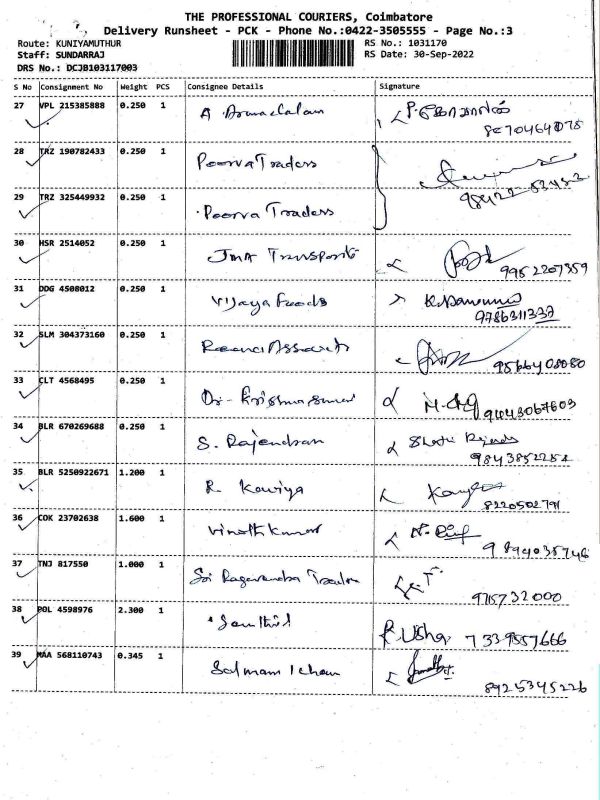 THE PROFESSIONAL COURIERS, Coimbatore
Delivery Runsheet - PCK - Phone No.:0422-3505555 - Page No.:3
Route: KUNIYAMUTHUR RS No.: 1031170
Staff: SUNDARRAJ RS Date: 30-Sep-2022
DRS No.: DCJB103117003
S No Consignment No Weight PCS Consignee Details Signature
27 VPL 215385888 0.250 1
28 TRZ 190782433 0.250 1 Poorva Traders
29 TRZ 325449932 0.250 1 Poorva Traders
30 HSR 2514052 0.250 1 JMA Transports
9952207359
31 DDG 4508012 0.250 1 Vijaya Foods
9786311337
32 SLM 304373160 0.250 1
9566408080
33 CLT 4568495 0.250 1
34 BLR 670269688 0.250 1 S. Rajendran
35 BLR 5250922671 1.200 1 R. Kaviya
8220502791
36 COK 23702638 1.600 1 Vinothkumar
9894035746
37 TNJ 817550 1.000 1 Sri Ragavendra
9715732000
38 POL 4598976 2.300 1 Senthil R. Usha 7339557666
39 MAA 568110743 0.345 1 Salman Khan
8925345226